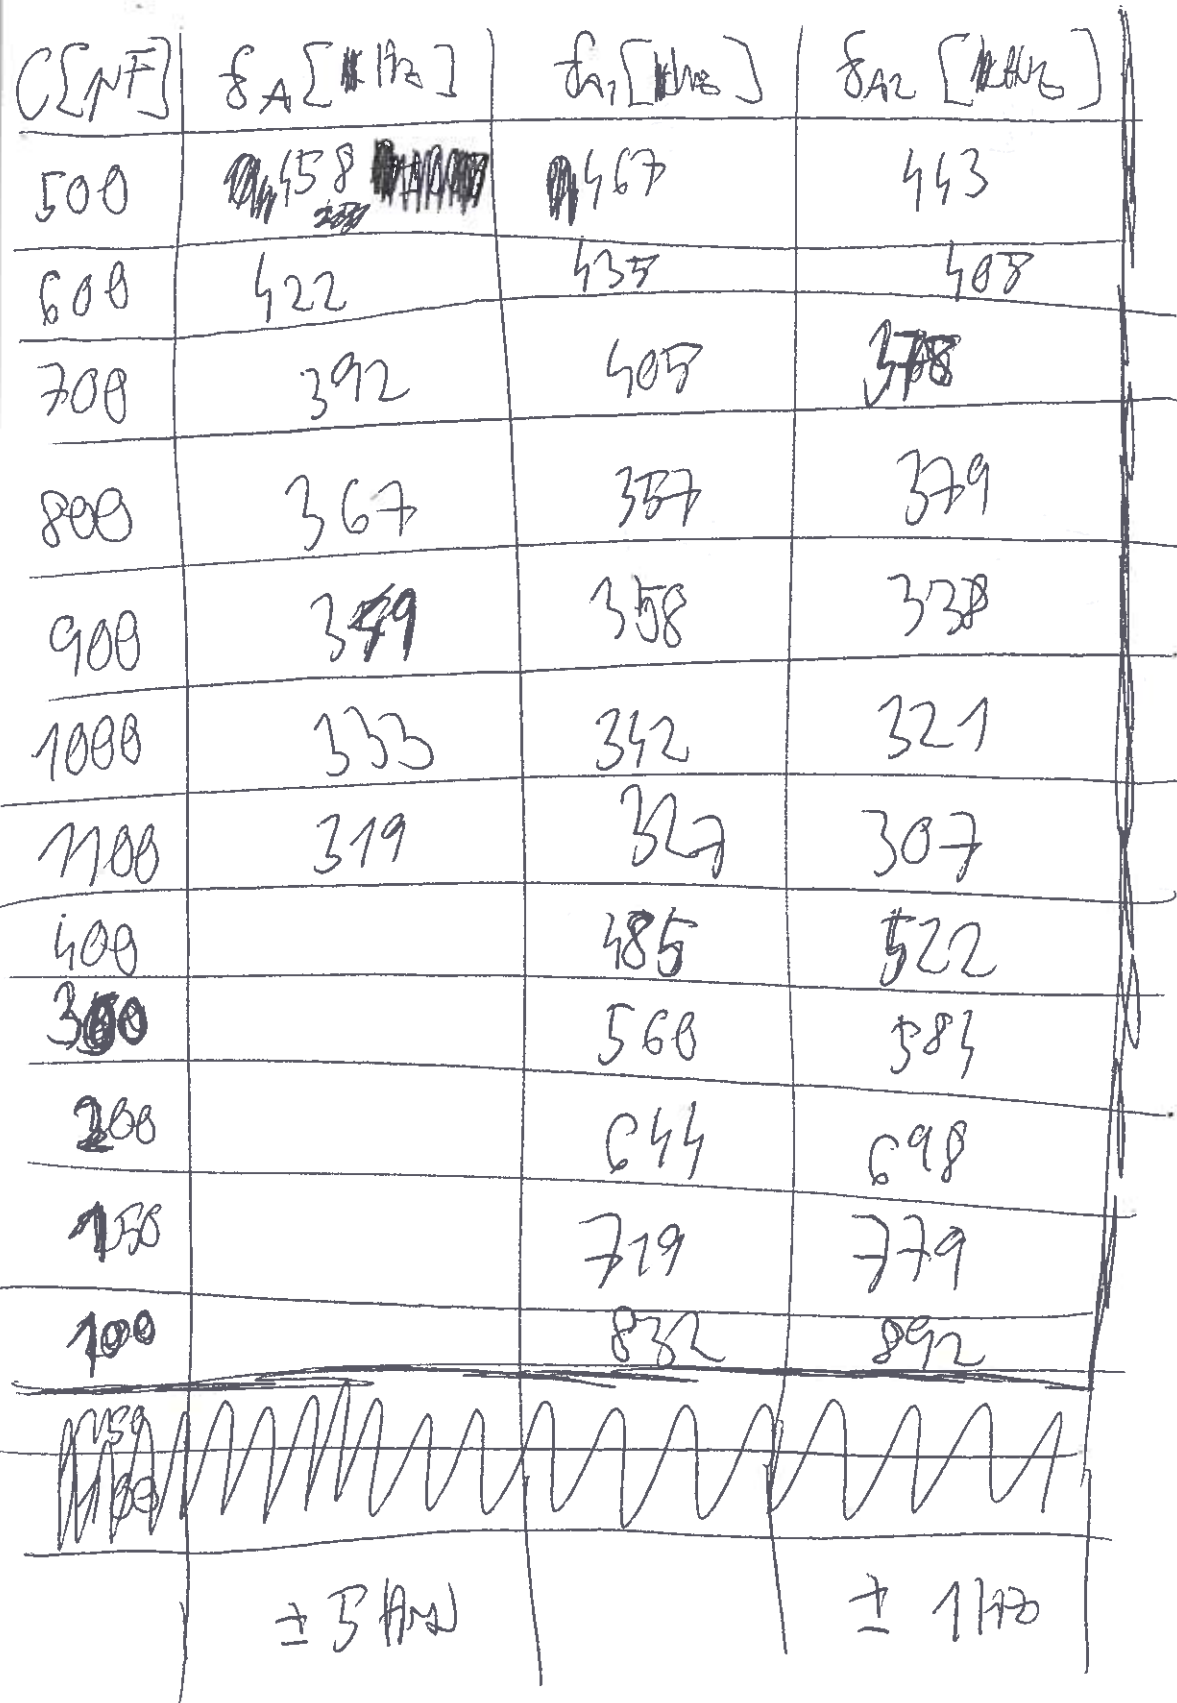 C[nF] f_A [Hz] f_A1 [Hz] f_A2 [Hz]
500 458 467 443
600 422 435 408
700 392 405 378
800 367 357 379
900 349 358 338
1000 333 342 321
1100 319 327 307
400 485 522
300 560 584
200 644 698
150 719 779
100 832 892
± 5 ± 1 Hz